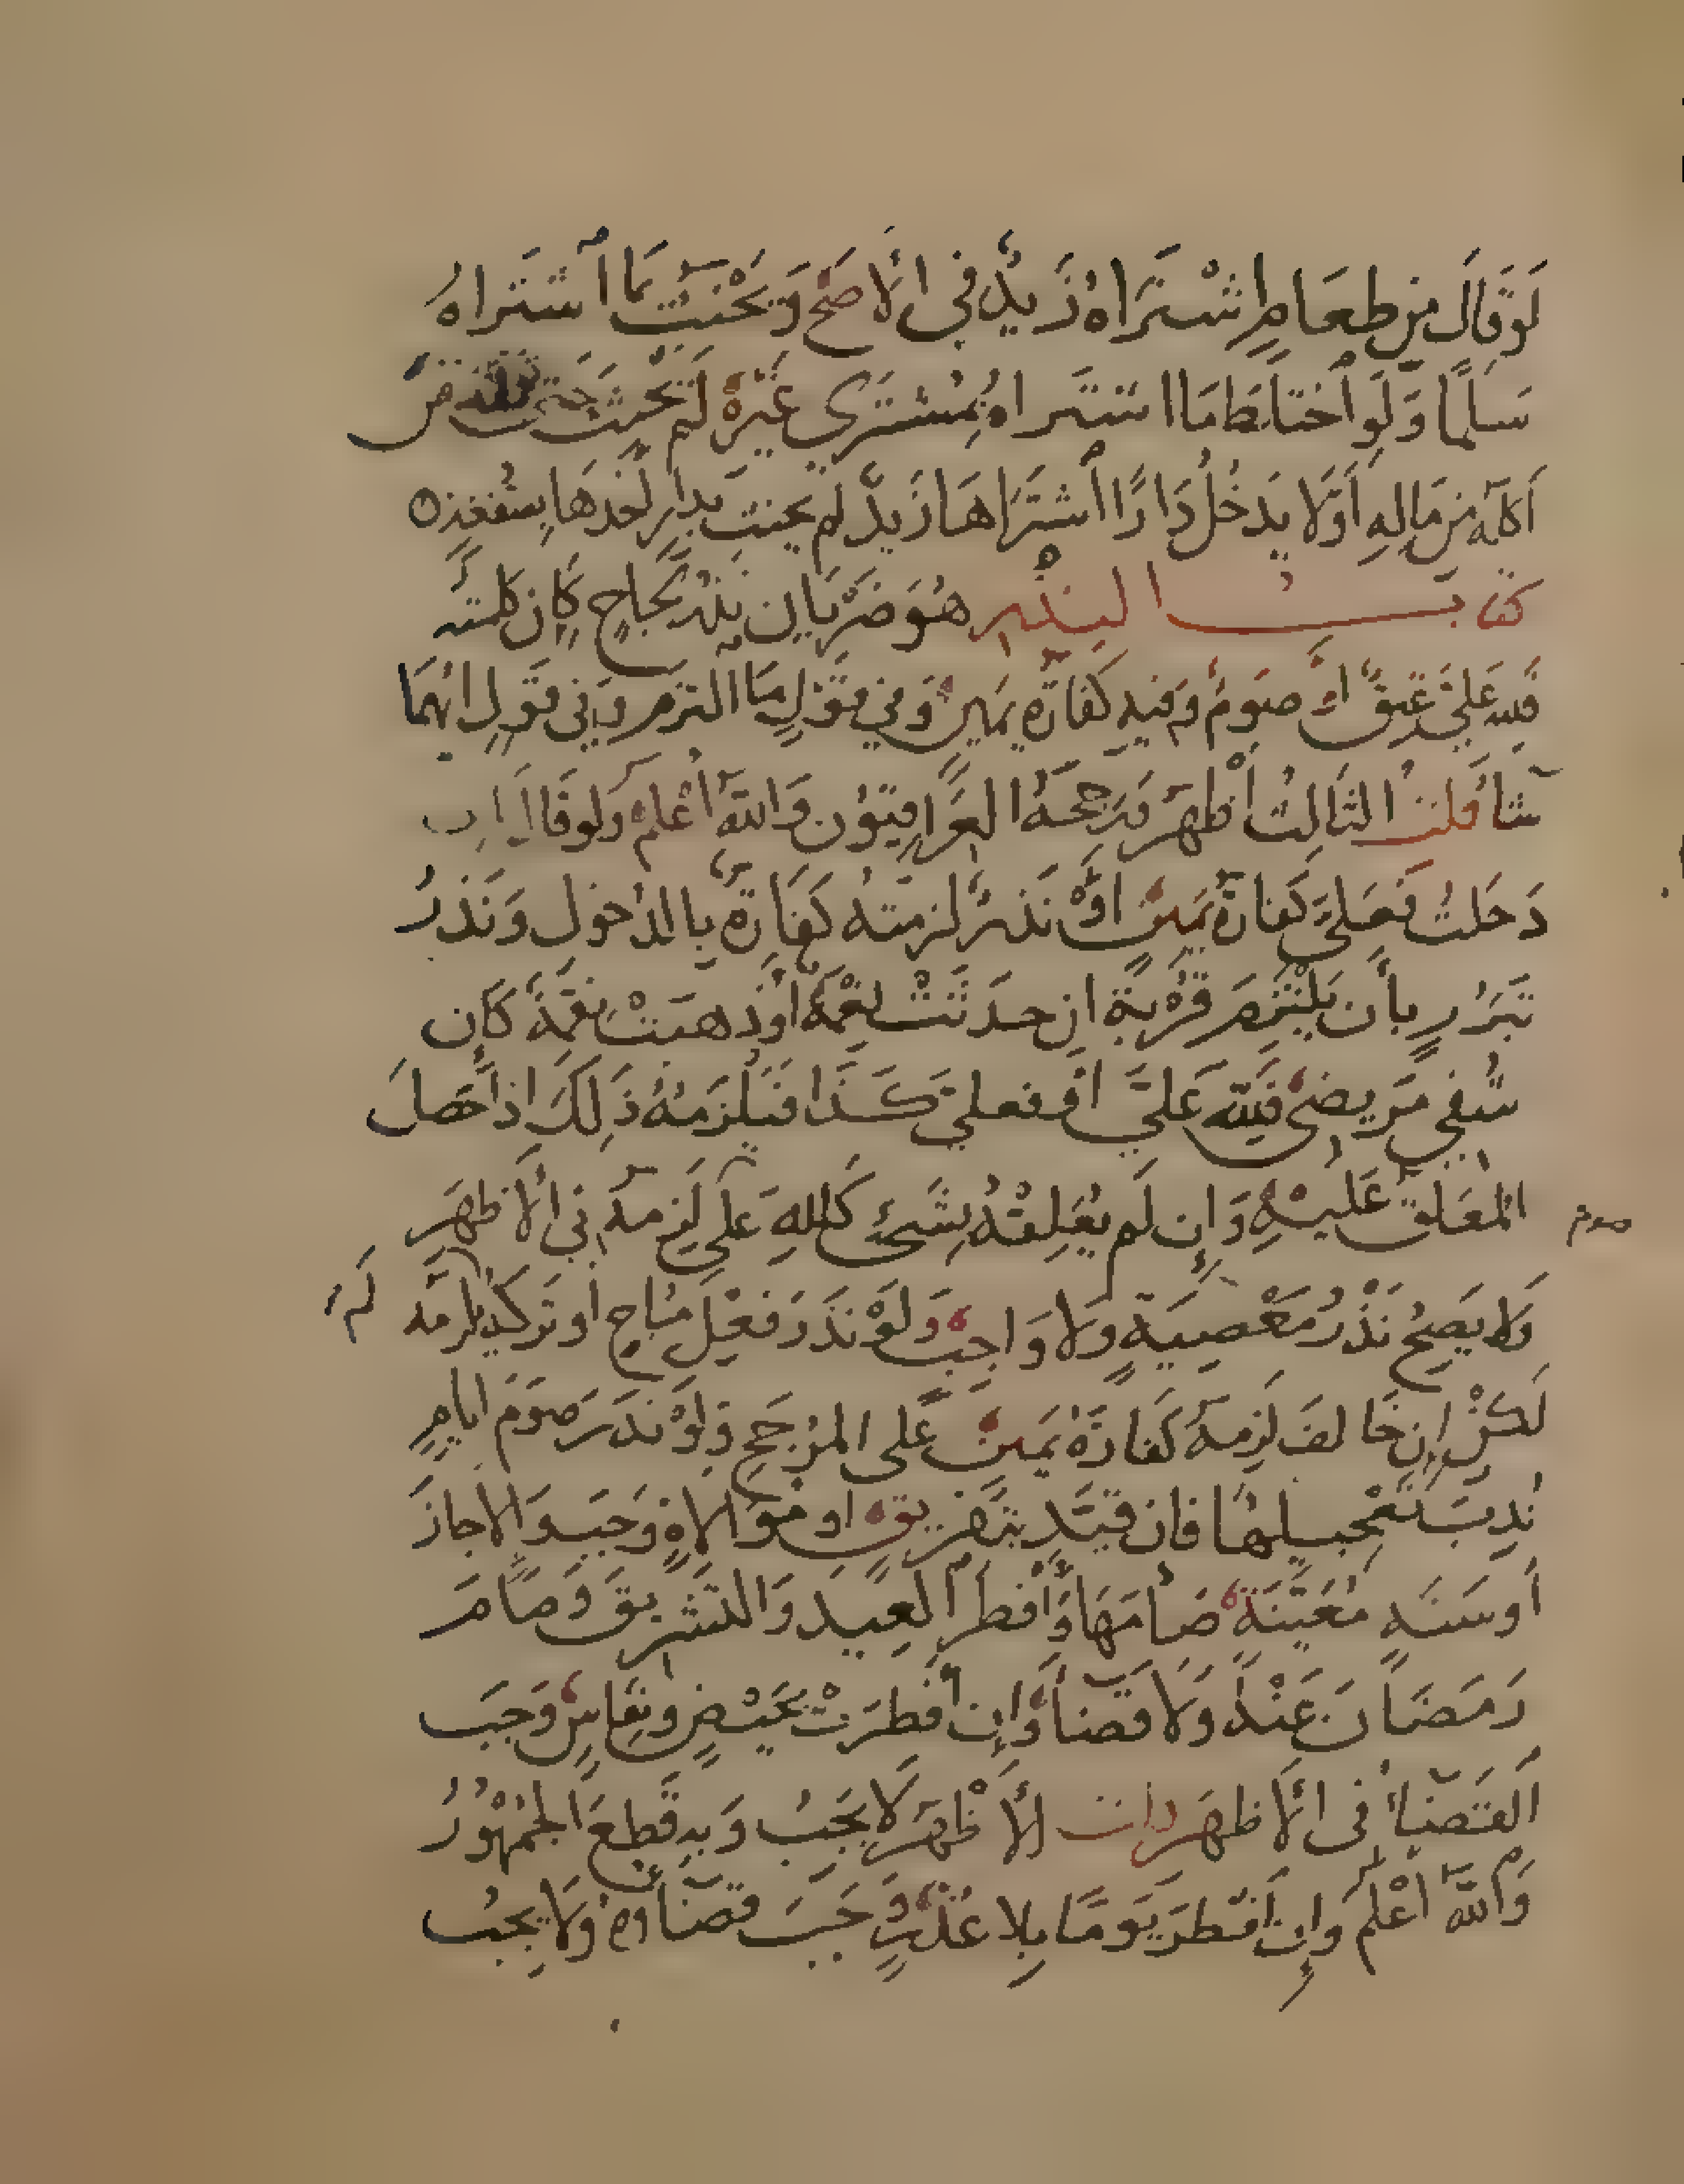 لَوْ قَالَ مِن طَعَامٍ اشْتَرَاهُ زَيْدٌ فِي الأَصَحِّ وَيَحْنَثُ بِمَا اشْتَرَاهُ
سَلَمًا وَلَوِ اخْتَلَطَ مَا اشْتَرَاهُ بِمُشْتَرَى غَيْرِهِ لَمْ يَحْنَثْ حَتَّى
أَكْلَهُ مِن مَالِهِ أَوْ لَا يَدْخُلُ دَارًا اشْتَرَاهَا زَيْدٌ لَم يحنث بِدَارٍ أَخَذَهَا بِشُفْعَةٍ
كتاب النذر هُوَ ضَرْبَانِ نَذْرُ لَجَاجٍ كَإِن كَلَّمْتُهُ
فَلِلّهِ عَلَيَّ عِتْقٌ أَوْ صَوْمٌ وَفِيهِ كَفَارَةُ يَمِينٍ وَفِي قَوْلٍ مَا الْتَزَمَ وَفِي قَوْلٍ أَيُّهمَا
شَاءَ قلت الثَالِثُ أَظْهَرُ وَرَجَّحَهُ العِرَاقِيُّونَ وَاللهُ أَعْلَمُ وَلَو قَالَ إِن
دَخَلْتُ فَعَلَيَّ كَفَارَةُ يَمِينٍ أَوْ نَذْرٌ لَزِمَتْهُ كَفَارَةٌ بِالدُّخُولِ وَنَذْرُ
تَبَرُّرٍ بِأَن يَلْتَزِمَ قُرْبَةً إِن حَدَثَتْ نِعْمَةٌ أَوْ ذَهَبَتْ نِقْمَةٌ كَإِن
شُفِي مَرِيضِي فَلِلّهِ عَلَيَّ أَوْ فَعَلَيَّ كَذَا فَيَلْزَمُهُ ذَلِكَ إِذَا حَصَلَ
المُعَلَّقُ عَلَيْهِ وَإِن لَم يُعَلِّقْهُ بِشَيْءٍ كَلِلهِ عَلَيَّ لَزِمَهُ فِي الأَظْهَرِ
صوم
وَلَا يَصِحُّ نَذْرُ مَعْصِيَةٍ وَلَا وَاجِبٍ وَلَوْ نَذَرَ فِعْلَ مُبَاحٍ أَو تَرْكَهُ يلزمه
لم
لَكِنْ إِن خَالَفَ لَزِمَهُ كَفَارَةُ يَمِينٍ عَلَى المُرَجَّحِ وَلَوْ نَذَرَ صَوْمَ أَيَامٍ
نُدِبَ تَعْجِيلُهَا فَإن قَيَّدَ بِتَفْرِيقٍ أَو مُوَالَاةٍ وَجَبَ وَإِلَّا جَازَ
أَو سَنَةٍ مُعَيَّنَةٍ صَامَهَا وَأَفْطَرَ العِيدَ وَالتَشْرِيقَ وَصَامَ
رَمَضَانَ عَنْهُ وَلَا قَضَاءَ وَإِن أَفْطَرَتْ بِحَيْضٍ وَنِفَاسٍ وَجَبَ
القَضَاءُ فِي الأَظْهَرِ قلت الأَظْهَرُ لَا يَجِبُ وَبِهِ قَطَعَ الجُمْهُورُ
وَاللهُ أَعْلَمُ وَإِن أَفْطَرَ يَوْمًا بِلَا عُذْرٍ وَجَبَ قَضَاؤُهُ وَلَا يَجِبُ